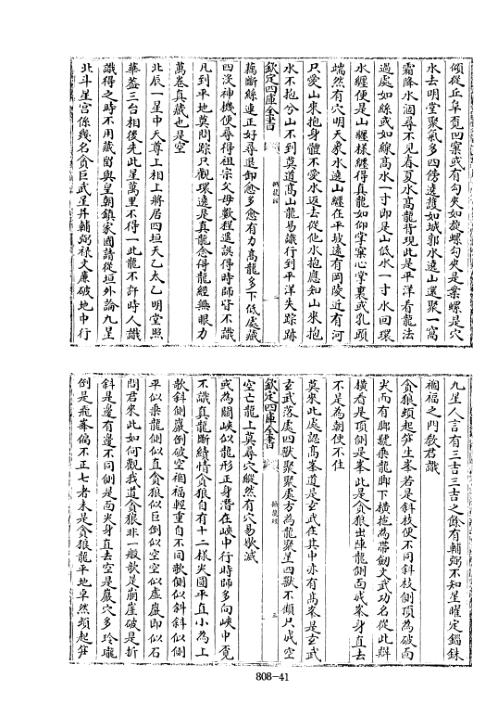 傾從丘阜覓凹窠或有勾夾如旋螺勾夾是案螺是穴
水去明堂聚氣多四傍遶護如城郭水遶山還聚一窩
霜降水涸尋不見春夏水高龍背現此是平洋看龍法
過處如絲或如線高水一寸即是山低水一寸水回環
水纒便是山纒樣纒得真龍如仰掌窠心掌裏或乳頭
端然有穴明天象水遶山纒在平坡遠有岡陵近有河
只愛山來抱身體不愛水返去從他水抱應知山來抱
水不抱兮山不到莫道高山龍易識行到平洋失踪跡
欽定四庫全書
撼龍經
二
藕斷絲連正好尋退卸愈多愈有力高龍多下低處藏
四沒神機便尋得祖宗父母數程遥誤得時師皆不識
凡到平地莫問踪只觀環遶是真龍念得龍經無眼力
萬卷真藏也是空
北辰一星中天尊上相上將居四垣天乙太乙明堂照
華葢三台相後先此星萬里不得一此龍不許時人識
識得之時不用藏留與皇朝鎮家國請從垣外論九星
北斗星宫係幾名貪巨武星并輔弼禄文廉破地中行
九星人言有三吉三吉之餘有輔弼不知星曜定錙銖
禍福之門教君識
貪狼頓起笋生峯若是斜枝便不同斜枝側頂為破面
尖而有脚號乘龍脚下橫拖為帶劒文武功名從此辨
橫看是頂側是峯此是貪狼出陣龍側面成峯身直去
不是為朝便不住
莫來此處認高峯道是玄武在其中亦有高峯是玄武
玄武落處四獸聚聚處方為龍聚星四獸不顧只成空
欽定四庫全書
撼龍經
三
空亡龍上莫尋穴縱然有穴易歇滅
或為關峽似龍形正身潛在峽中行時師多向峽中覓
不識真龍斷續情貪狼自有十二樣尖圓平直小為上
欹斜側巖倒破空禍福輕重自不同欹側似斜斜似側
平似乘龍側似直貪狼似巨倒似空空似虛巖即似石
問君來此如何觀我道貪狼非一般欹是崩崖破是折
斜是邊有邊不同側是面尖身直去空是巖穴多玲瓏
倒是飛峯偏不正七者未是貪狼龍平地卓然頓起笋
808-41